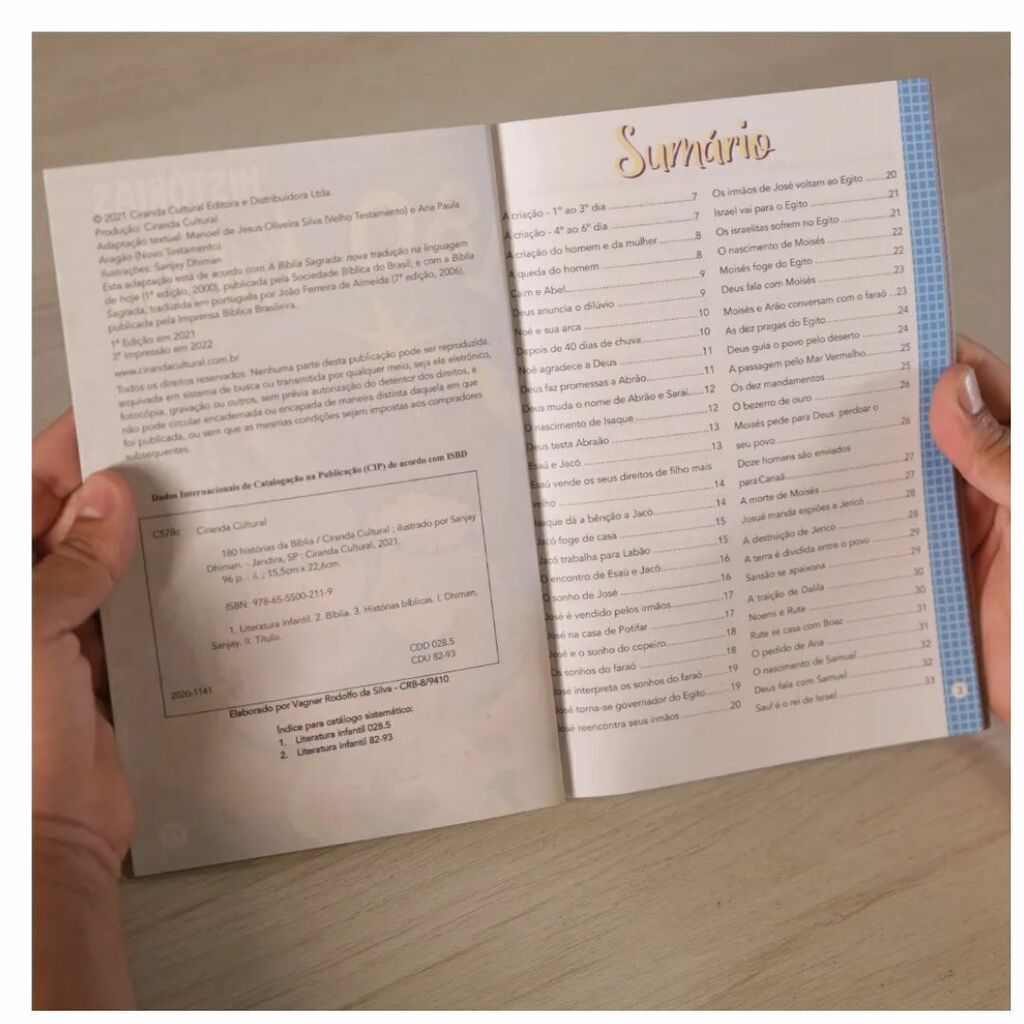 © 2021 Ciranda Cultural Editora e Distribuidora Ltda.
Produção: Ciranda Cultural
Adaptação textual: Manoel de Jesus Oliveira Silva (Velho Testamento) e Ana Paula
Aragão (Novo Testamento)
Ilustrações: Sanjay Dhiman
Esta adaptação está de acordo com A Bíblia Sagrada: nova tradução na linguagem
de hoje (1ª edição, 2000), publicada pela Sociedade Bíblica do Brasil; e com a Bíblia
Sagrada, traduzida em português por João Ferreira de Almeida (7ª edição, 2006),
publicada pela Imprensa Bíblica Brasileira.
1ª Edição em 2021
3ª Impressão em 2022
www.cirandacultural.com.br
Todos os direitos reservados. Nenhuma parte desta publicação pode ser reproduzida,
arquivada em sistema de busca ou transmitida por qualquer meio, seja ele eletrônico,
fotocópia, gravação ou outros, sem prévia autorização do detentor dos direitos, e
não pode circular encadernada ou encapada de maneira distinta daquela em que
foi publicada, ou sem que as mesmas condições sejam impostas aos compradores
subsequentes.
Dados Internacionais de Catalogação na Publicação (CIP) de acordo com ISBD
C578c Ciranda Cultural
180 histórias da Bíblia / Ciranda Cultural ; ilustrado por Sanjay
Dhiman. - Jandira, SP : Ciranda Cultural, 2021.
96 p. : il. ; 15,5cm x 22,6cm.
ISBN: 978-65-5500-211-9
1. Literatura infantil. 2. Bíblia. 3. Histórias bíblicas. I. Dhiman,
Sanjay. II. Título.
CDD 028.5
CDU 82-93
2020-1141
Elaborado por Vagner Rodolfo da Silva - CRB-8/9410
Índice para catálogo sistemático:
1. Literatura infantil 028.5
2. Literatura infantil 82-93
Sumário
A criação - 1º ao 3º dia ....................7
A criação - 4º ao 6º dia ....................7
A criação do homem e da mulher ..........8
A queda do homem ....................8
Caim e Abel....................9
Deus anuncia o dilúvio ....................9
Noé e sua arca ....................10
Depois de 40 dias de chuva....................10
Noé agradece a Deus ....................11
Deus faz promessas a Abrão....................11
Deus muda o nome de Abrão e Sarai......12
O nascimento de Isaque ....................12
Deus testa Abraão ....................13
Esaú e Jacó ....................13
Esaú vende os seus direitos de filho mais
velho ....................14
Isaque dá a bênção a Jacó....................14
Jacó foge de casa ....................15
Jacó trabalha para Labão ....................15
O encontro de Esaú e Jacó....................16
O sonho de José ....................16
José é vendido pelos irmãos....................17
José na casa de Potifar ....................17
José e o sonho do copeiro....................18
Os sonhos do faraó ....................18
José interpreta os sonhos do faraó ........19
José torna-se governador do Egito........19
José reencontra seus irmãos ....................20
Os irmãos de José voltam ao Egito ........20
Israel vai para o Egito ....................21
Os israelitas sofrem no Egito ....................21
O nascimento de Moisés ....................22
Moisés foge do Egito ....................22
Deus fala com Moisés ....................23
Moisés e Arão conversam com o faraó ..23
As dez pragas do Egito....................24
Deus guia o povo pelo deserto ..............24
A passagem pelo Mar Vermelho..............25
Os dez mandamentos ....................25
O bezerro de ouro ....................26
Moisés pede para Deus perdoar o
seu povo ....................26
Doze homens são enviados
para Canaã ....................27
A morte de Moisés ....................27
Josué manda espiões a Jericó ..............28
A destruição de Jericó ....................28
A terra é dividida entre o povo ..............29
Sansão se apaixona ....................29
A traição de Dalila ....................30
Noemi e Rute ....................30
Rute se casa com Boaz ....................31
O pedido de Ana ....................31
O nascimento de Samuel ....................32
Deus fala com Samuel ....................32
Saul é o rei de Israel ....................33
3